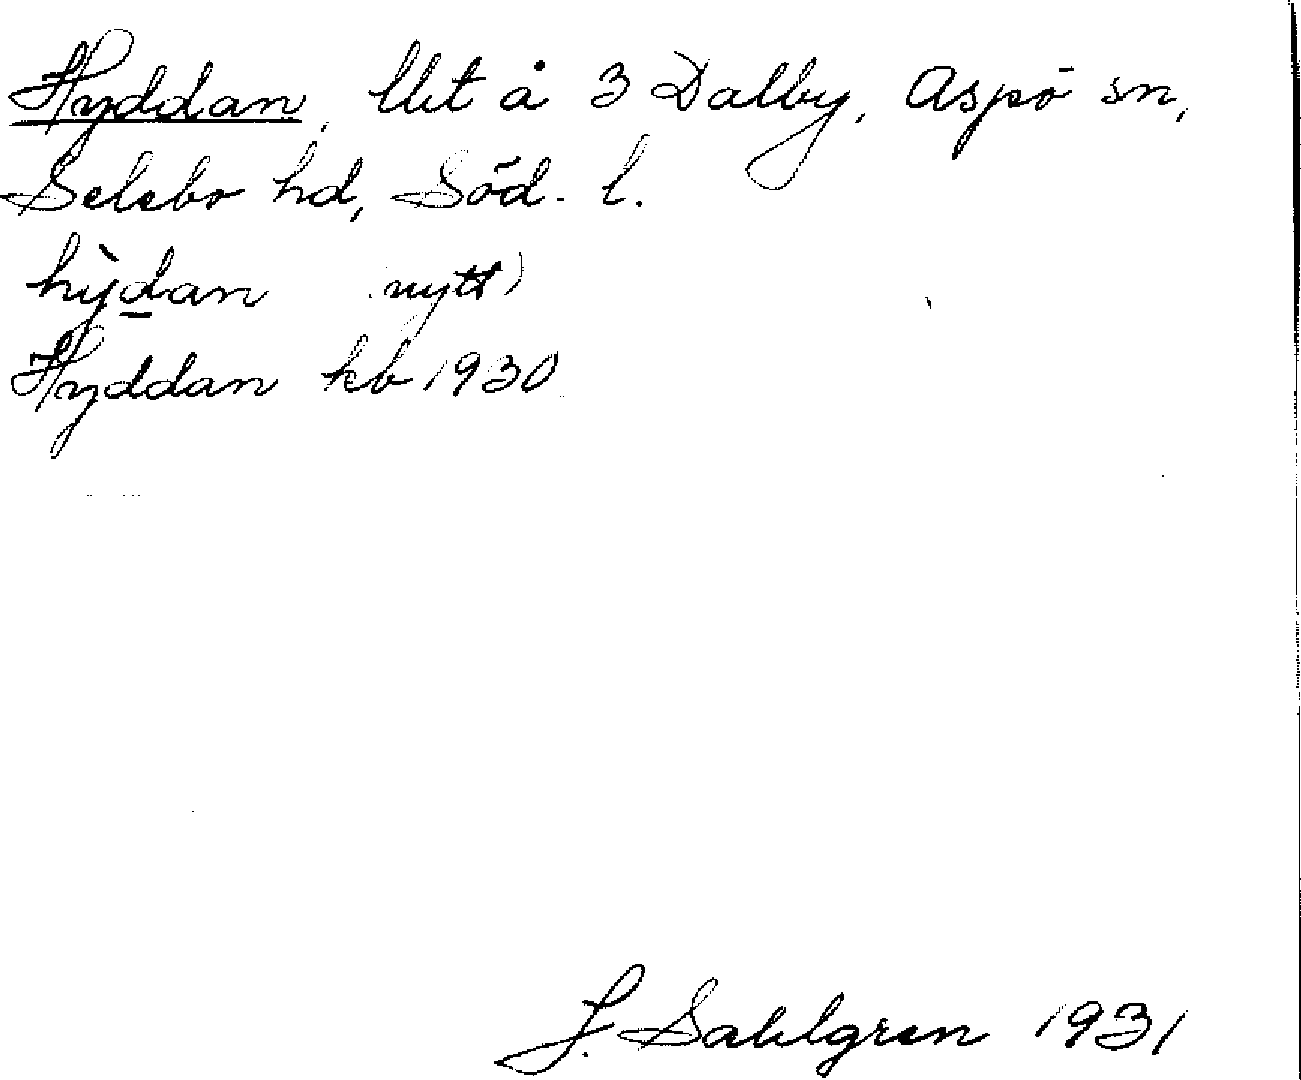 Hyddan, lht å 3 Dalby, Aspö sn,
Selebo hd, Söd. l.
hỳdan (nytt)
Hyddan kb 1930
J. Sahlgren 1931